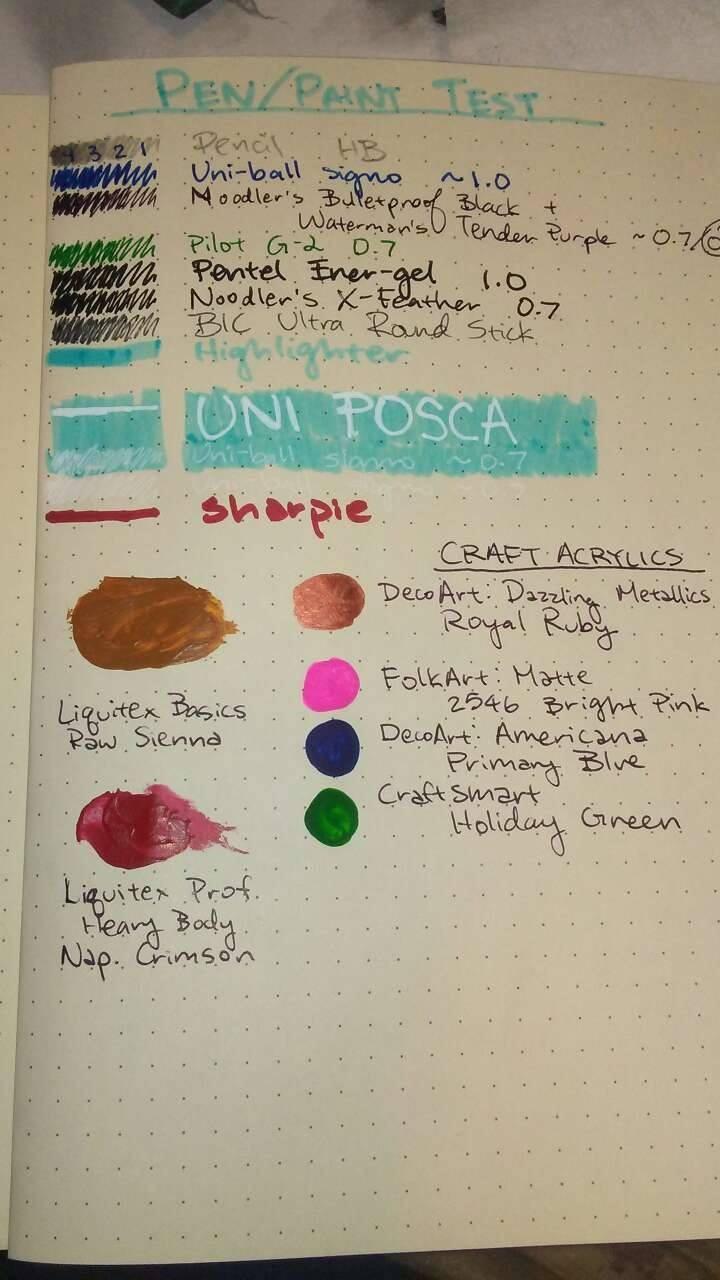 PEN/PAINT TEST
4 3 2 1 Pencil HB
Uni-ball signo ~1.0
Noodler's Buletproof Black +
Waterman's Tender Purple ~0.7/
Pilot G-2 0.7
Pentel Ener-gel 1.0
Noodler's X-Feather 0.7
BIC Ultra Round Stick
Highlighter
UNI POSCA
Uni-ball signno ~0.7
sharpie
CRAFT ACRYLICS
DecoArt: Dazzling Metallics
Royal Ruby
FolkArt: Matte
2546 Bright Pink
DecoArt: Americana
Primary Blue
CraftSmart
Holiday Green
Liquitex Basics
Raw Sienna
Liquitex Prof.
Heavy Body
Nap. Crimson